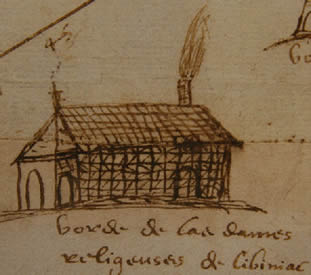 borde de las dames
religeuses de libiniac